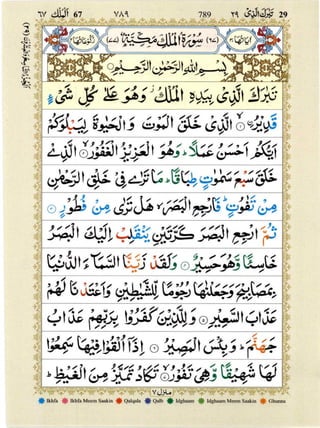 ٦٧ الملك 67 ٧٨٩ 789 ٢٩ تبرك الذى 29
(٦٧) سُوْرَةُ الْمُلْكِ مَكِّيَّةٌ (٧٧)
بِسْمِ اللّٰهِ الرَّحْمٰنِ الرَّحِيْمِ
تَبٰرَكَ الَّذِىْ بِيَدِهِ الْمُلْكُ وَهُوَ عَلٰى كُلِّ شَىْءٍ
قَدِيْرُ ۙ الَّذِىْ خَلَقَ الْمَوْتَ وَالْحَيٰوةَ لِيَبْلُوَكُمْ
اَيُّكُمْ اَحْسَنُ عَمَلًا ؕ وَهُوَ الْعَزِيْزُ الْغَفُوْرُ ۙ الَّذِىْ
خَلَقَ سَبْعَ سَمٰوٰتٍ طِبَاقًا ؕ مَا تَرٰى فِىْ خَلْقِ الرَّحْمٰنِ
مِنْ تَفٰوُتٍ ؕ فَارْجِعِ الْبَصَرَ ۙ هَلْ تَرٰى مِنْ فُطُوْرٍ
ثُمَّ ارْجِعِ الْبَصَرَ كَرَّتَيْنِ يَنْقَلِبْ اِلَيْكَ الْبَصَرُ
خَاسِئًا وَّهُوَ حَسِيْرٌ وَلَقَدْ زَيَّنَّا السَّمَآءَ الدُّنْيَا
بِمَصَابِيْحَ وَجَعَلْنٰهَا رُجُوْمًا لِّلشَّيٰطِيْنِ وَاَعْتَدْنَا لَهُمْ
عَذَابَ السَّعِيْرِ وَلِلَّذِيْنَ كَفَرُوْا بِرَبِّهِمْ عَذَابُ
جَهَنَّمَ ؕ وَبِئْسَ الْمَصِيْرُ اِذَاۤ اُلْقُوْا فِيْهَا سَمِعُوْا
لَهَا شَهِيْقًا وَّهِىَ تَفُوْرُ ۙ تَكَادُ تَمَيَّزُ مِنَ الْغَيْظِ ؕ
منزل ٧
Ikhfa Ikhfa Meem Saakin Qalqala Qalb Idghaam Idghaam Meem Saakin Ghunna